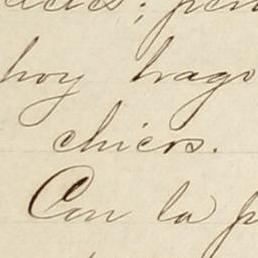 hoy hago
chicos.
Con la